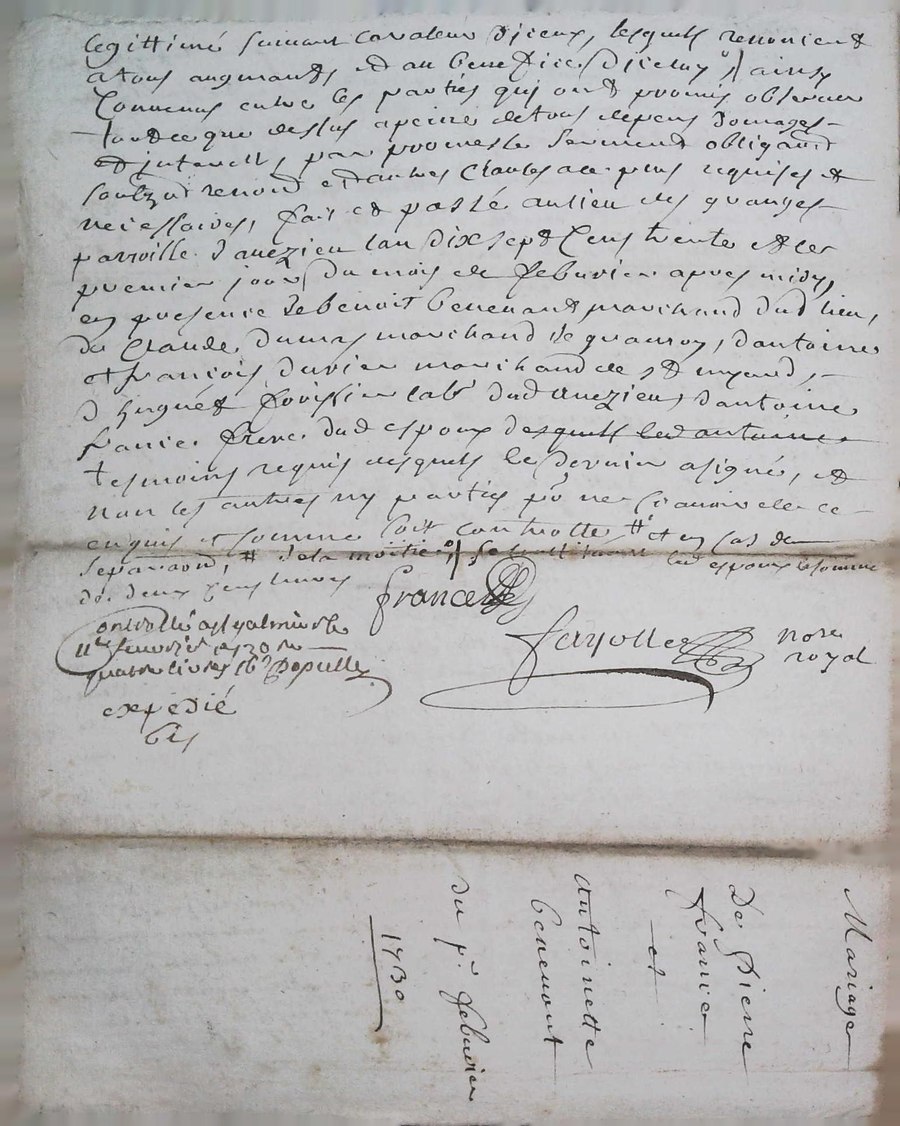 legittimé suivant la valeur d'iceux, lesquels renoncent
a tous augmands, et au benefice d'iceluy, ainsy
Convenus entre les parties qui ont promis observer
tout ce que dessus a peine de tous depens domages
et interests, par promesse serment obligaõn
renonõn et autres Clauses a ce plus requises et
necessaires, fait et passé au lieu des granges
parroisse d'avezieu lan dix sept Cens trente et le
premier jour du mois de febvrier apres midy,
en presence de benoit benevent marchand dud lieu,
de Claude dumas marchand de d'antoine
et francois marchand de
d'hugues dud avezieu d'antoine
france frere dud espoux desquels led antoine
tesmoins requis desquels le dernier a signé, et
non les autres ny parties pour ne scavoir de ce
enquis et sommé soit controllé # et en cas de
# de la moitié led espoux la somme
de deux Cens livres
france
fayolle nore
royal
controllé a st galmier le
11e fevrier 1730
quatre livres 16s
expédié
bis
Mariage
De Pierre
france
et
antoinette
benevent
du pr febvrier
1730